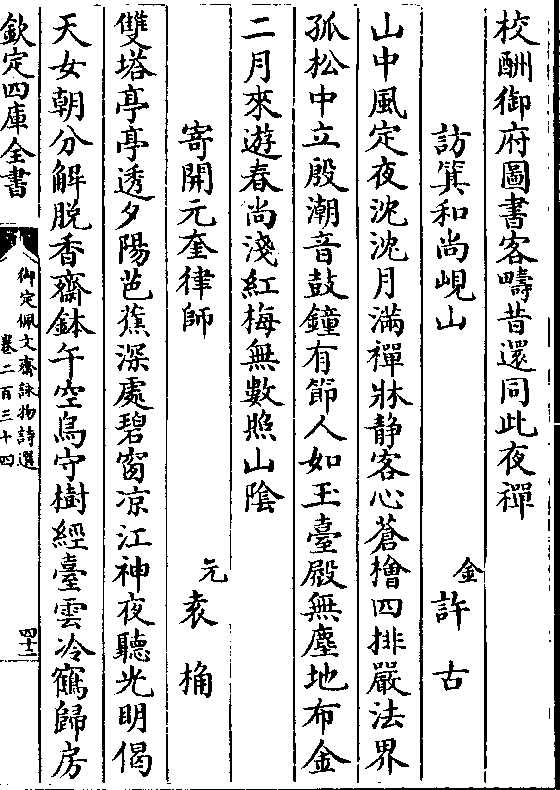 校酬御府圖書客疇昔還同此夜禪
訪箕和尚峴山
金 許古
山中風定夜沈沈月滿禪牀靜客心蒼檜四排嚴法界
孤松中立殷潮音鼓鐘有節人如玉臺殿無塵地布金
二月來遊春尚淺紅梅無數照山陰
寄開元奎律師
元 袁桷
雙塔亭亭透夕陽芭蕉深處碧窗凉江神夜聽光明偈
天女朝分解脱香齋鉢午空鳥守樹經臺雲冷鶴歸房
欽定四庫全書
御定佩文齋詠物詩選
卷二百三十四
四十二